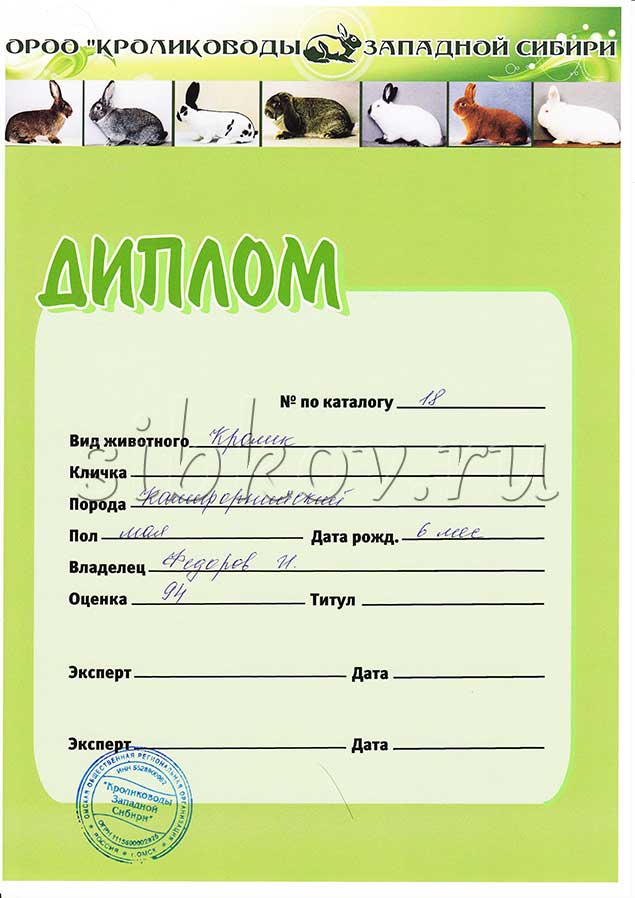 ОРОО "КРОЛИКОВОДЫ ЗАПАДНОЙ СИБИРИ
ДИПЛОМ
№ по каталогу 18
Вид животного Кролик
Кличка
sibkov.ru
Порода Калифорнийский
Пол мая Дата рожд. 6 мес
Владелец Федоров И.
Оценка 94 Титул
Эксперт Дата
Эксперт Дата
ОМСКАЯ ОБЩЕСТВЕННАЯ РЕГИОНАЛЬНАЯ ОРГАНИЗАЦИЯ
ИНН
"Кролиководы
Западной
Сибири"
ОГРН
РОССИЯ г.ОМСК